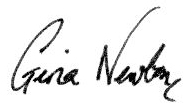 Gina Newton